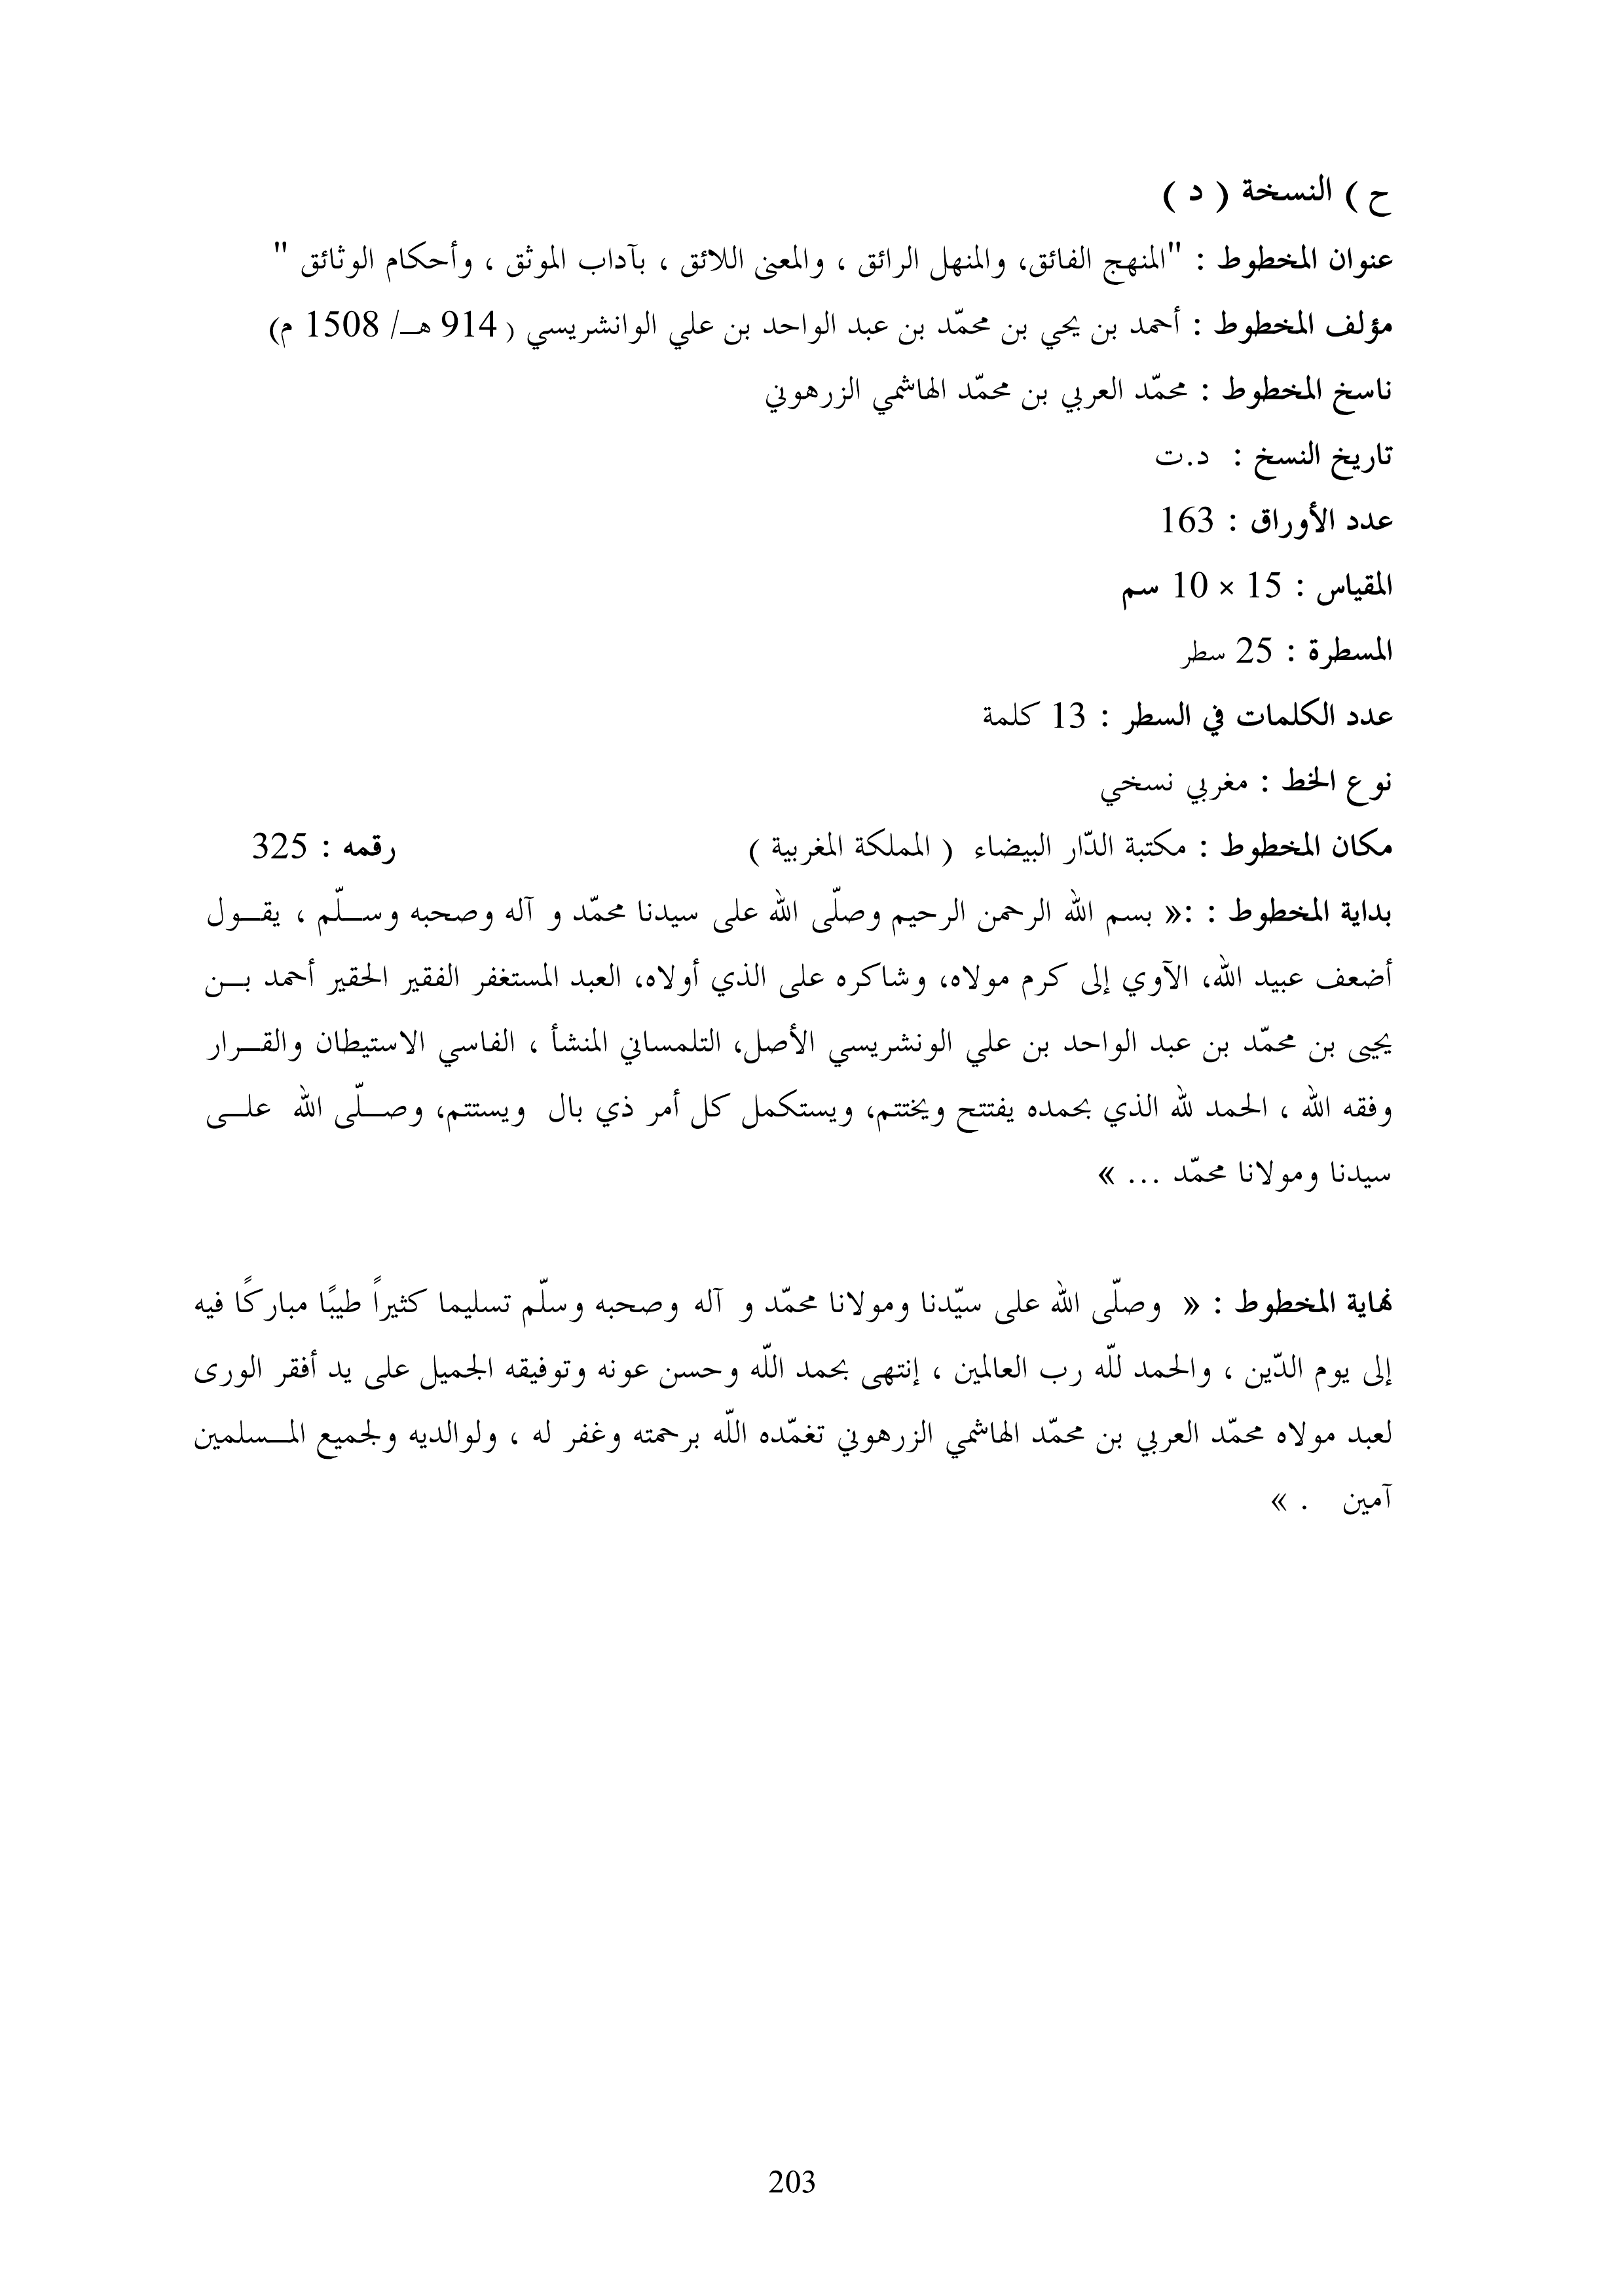 ح ) النسخة ( د )
عنوان المخطوط : "المنهج الفائق، والمنهل الرائق ، والمعنى اللائق ، بآداب الموثق ، وأحكام الوثائق "
مؤلف المخطوط : أحمد بن يحي بن محمّد بن عبد الواحد بن علي الوانشريسي ( 914 هـ/ 1508 م)
ناسخ المخطوط : محمّد العربي بن محمّد الهاشمي الزرهوني
تاريخ النسخ : د.ت
عدد الأوراق : 163
المقياس : 15 × 10 سم
المسطرة : 25 سطر
عدد الكلمات في السطر : 13 كلمة
نوع الخط : مغربي نسخي
مكان المخطوط : مكتبة الدّار البيضاء ( المملكة المغربية ) رقمه : 325
بداية المخطوط : :« بسم الله الرحمن الرحيم وصلّى الله على سيدنا محمّد و آله وصحبه وسلّم ، يقول
أضعف عبيد الله، الآوي إلى كرم مولاه، وشاكره على الذي أولاه، العبد المستغفر الفقير الحقير أحمد بن
يحيى بن محمّد بن عبد الواحد بن علي الونشريسي الأصل، التلمساني المنشأ ، الفاسي الاستيطان والقرار
وفقه الله ، الحمد لله الذي بحمده يفتتح ويختتم، ويستكمل كل أمر ذي بال ويستتم، وصلّى الله على
سيدنا ومولانا محمّد ... »
نهاية المخطوط : « وصلّى الله على سيّدنا ومولانا محمّد و آله وصحبه وسلّم تسليما كثيراً طيبًا مباركًا فيه
إلى يوم الدّين ، والحمد للّه رب العالمين ، إنتهى بحمد اللّه وحسن عونه وتوفيقه الجميل على يد أفقر الورى
لعبد مولاه محمّد العربي بن محمّد الهاشمي الزرهوني تغمّده اللّه برحمته وغفر له ، ولوالديه ولجميع المسلمين
آمين . »
203